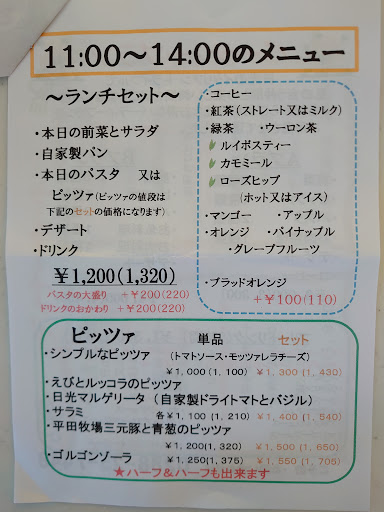 11:00～14:00のメニュー
～ランチセット～
・本日の前菜とサラダ
・自家製パン
・本日のパスタ 又は
ピッツァ(ピッツァの値段は
下記のセットの価格になります)
・デザート
・ドリンク
￥1,200(1,320)
パスタの大盛り ＋￥200(220)
ドリンクのおかわり ＋￥200(220)
・コーヒー
・紅茶(ストレート又はミルク)
・緑茶 ・ウーロン茶
ルイボスティー
カモミール
ローズヒップ
(ホット又はアイス)
・マンゴー ・アップル
・オレンジ ・パイナップル
・グレープフルーツ
・ブラッドオレンジ
＋￥100(110)
ピッツァ 単品 セット
・シンプルなピッツァ (トマトソース・モッツァレラチーズ)
￥1,000(1,100) ￥1,300(1,430)
・えびとルッコラのピッツァ
・日光マルゲリータ (自家製ドライトマトとバジル)
・サラミ 各￥1,100(1,210) ￥1,400(1,540)
・平田牧場三元豚と青葱のピッツァ
￥1,200(1,320) ￥1,500(1,650)
・ゴルゴンゾーラ ￥1,250(1,375) ￥1,550(1,705)
★ハーフ＆ハーフも出来ます